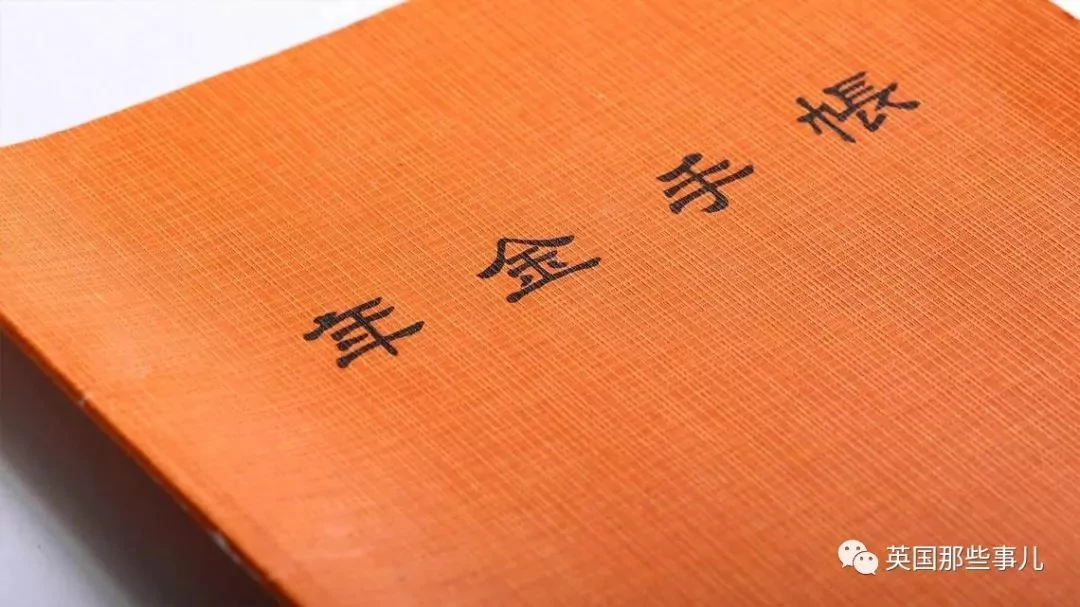 年金手帳
英国那些事儿